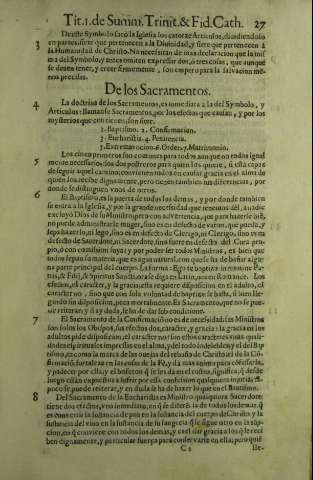 Tit. 1. de Summ. Trinit. & Fid. Cath. 27
Deaste Symbolo sacó la Iglesia los catorze Articulos, diuidiendolo
3 en partes, siete que pertenecen a la Diuinidad, y siete que pertenecen à
la Humanidad de Christo. No necesitan de mas declaracion que la mis-
ma del Symbolo, y estos omiten expressar dos, ò tres cosas, que aunque
se deuen tener, y creer firmemente, son empero para la saluacion me-
nos precisas.
De los Sacramentos.
4 La doctrina de los Sacramentos, es inmediata a la del Symbolo, y
Articulos: llamanse Sacramentos, por los efectos que causan, y por los
mysterios que contienen, son siete.
1. Baptismo. 2. Confirmacion.
3. Eucharistia. 4. Penitencia.
5. Extremauncion. 6. Orden. 7. Matrimonio.
5 Los cinco primeros son comunes para todos, aunque no todos igual
mente necesarios: los dos postreros para quien los quiere, si està capaz
de seguir aquel camino; conuienen todos en causar gracia en el alma de
quien los recibe dignamente, pero tienen tambien sus diferencias, por
donde se distinguen vnos de otros.
6 El Baptismo, es la puerta de todos los demas, y por donde tambien
se entra a la Iglesia, y por la grande necesidad que tenemos del, a nadie
excluyó Dios de su Ministro, pero con aduertencia, que para hazerle
no puede administrarle muger, sino es en defecto de varon, que pueda, y
sepa hazerlo, ni lego, sino es en defecto de Clerigo, ni Clerigo, sino es en
defecto de Sacerdote, ni Sacerdote, sino fuere en defecto del Cura pro-
pio, ò con comission suya: y por poder ser todos Ministros, es bien que
todos sepan su materia, que es agua natural, con que se ha de bañar algu-
na parte principal del cuerpo. La forma: Ego te baptizo in nomine Pa-
tris, & Filij, & Spiritus Sancti, ora se diga en Latin, ora en Romance. Los
efectos, el caracter, y la gracia; esta requiere disposicion en el adulto, el
caracter no, sino que con sola voluntad de baptizarse basta, si bien lle-
gando sin disposicion, peca mortalmente. Es Sacramento, que no se pue-
de reiterar, y si ay duda, se ha de dar sub conditione.
7 El Sacramento de la Confirmacion no es de necesidad: sus Ministros
son solos los Obispos, sus efectos dos, caracter, y gracia: la gracia en los
adultos pide disposicion; el caracter no: son estos caracteres vnas quali-
dades espirituales impressas en el alma, y de todo indelebles; y el del Bap
tismo, es como la marca de las ouejas del rebaño de Christo: al de la Cõ-
firmacion fortaleze en las cosas de la Fè, y dà mas animo para cõfessarla,
y padecer por ella; y el bofeton q̃ se les da en el rostro, significa, q̃ desde
luego estàn expuestos a sufrir por esta confession qualquiera injuria: tã-
poco se puede reiterar, y en duda se ha de hazer lo que en el Bautismo.
8 Del Sacramento de la Eucharistia es Ministro qualquiera Sacerdote:
tiene dos efectos, vno inmediato, en q̃ se diferẽcia de todos los demas, q̃
es conuertir la sustancia de pan en la sustancia del cuerpo de Christo y la
sustancia del vino en la sustancia de su sangre
ciõ, en q̃ conuiene con todos los demas, y es el dar gracia a los q̃ le reci
ben dignamente, y particular fuerça para conseruarse en ella; pero quiẽ
C 2